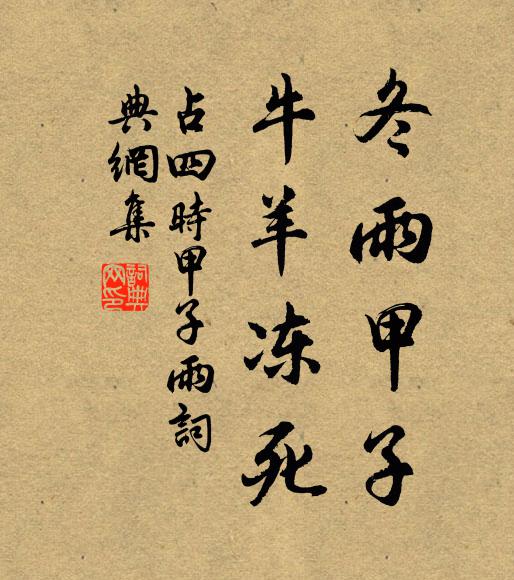 冬雨甲子
牛羊冻死
占四時甲子雨詞
典網集
詞典網印